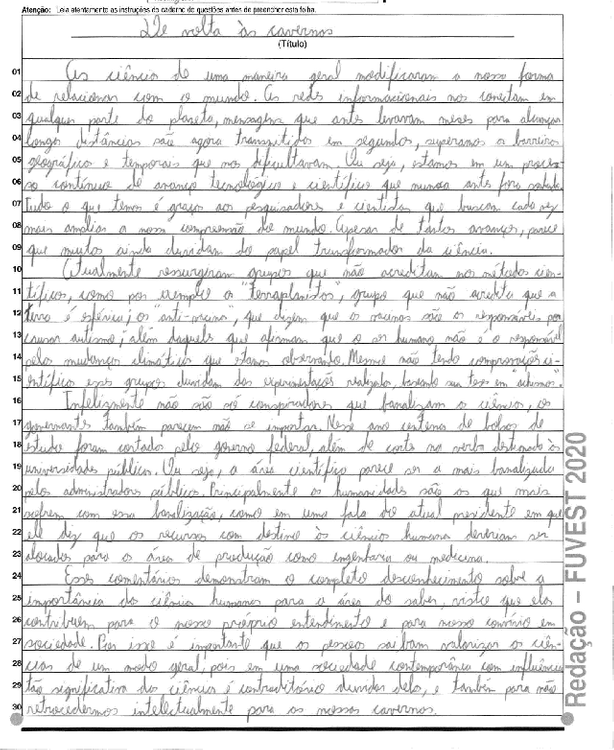 Atenção: Leia atentamente as instruções do caderno de questões antes de preencher esta folha.
De volta às cavernas
(Título)
01 As ciências de uma maneira geral modificaram a nossa forma
02 de relacionar com o mundo. As redes informacionais nos conectam em
03 qualquer parte do planeta, mensagens que antes levavam meses para alcançar
04 longas distâncias são agora transmitidas em segundos, superamos as barreiras
05 geográficas e temporais que nos dificultavam. Ou seja, estamos em um proces-
06 so contínuo de avanço tecnológico e científico que nunca antes fora
07 Tudo o que temos é graças aos pesquisadores e cientistas que buscam cada vez
08 mais ampliar a nossa compreensão do mundo. Apesar de tantos avanços, parece
09 que muitos ainda duvidam do papel transformador da ciência.
10 Atualmente ressurgiram grupos que não acreditam nos métodos cien-
11 tíficos, como por exemplo os "terraplanistas", grupo que não acredita que a
12 terra é esférica; os "anti-vacina", que dizem que as vacinas são as responsáveis por
13 causar autismo; além daqueles que afirmam que o ser humano não é o responsável
14 pelas mudanças climáticas que estamos observando. Mesmo não tendo comprovações ci-
15 entíficas esses grupos duvidam das experimentações realizadas, baseando sua tese em "achismos".
16 Infelizmente não são só conspiradores que banalizam as ciências, os
17 governantes também parecem não se importar. Nesse ano centenas de bolsas de
18 estudo foram cortadas pelo governo federal, além de corte na verba destinada às
19 universidades públicas. Ou seja, a área científica parece ser a mais banalizada
20 pelos administradores públicos. Principalmente as humanidades são as que mais
21 sofrem com essa banalização, como em uma fala do atual presidente em que
22 ele diz que os recursos com destino às ciências humanas deveriam ser
23 alocados para as áreas de produção como engenharia ou medicina.
24 Esses comentários demonstram o completo desconhecimento sobre a
25 importância das ciências humanas para a área do saber, visto que elas
26 contribuem para o nosso próprio entendimento e para nosso convívio em
27 sociedade. Por isso é importante que as pessoas saibam valorizar as ciên-
28 cias de um modo geral, pois em uma sociedade contemporânea com influência
29 tão significativa das ciências é contraditório duvidar delas, e também para não
30 retrocedermos intelectualmente para as nossas cavernas.
Redação – FUVEST 2020